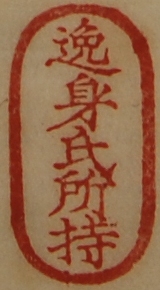 逸身氏所持